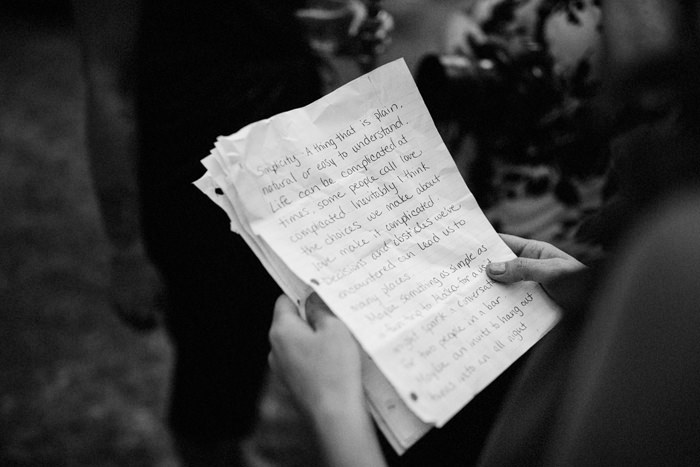 Simplicity: A thing that is plain,
natural or easy to understand.
Life can be complicated at
times, some people call love
complicated. Inevitably I think
the choices we make about
love make it complicated
Decisions and obstacles we've
encountered can lead us to
many places.
Maybe something as simple as
a trip to Alaska for a
might spark a conversation
for two people in a bar
Maybe an invite to hang out
turns into an all night